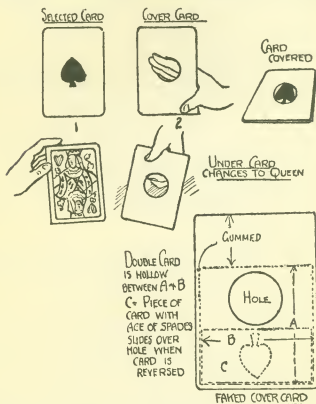 SELECTED CARD
COVER CARD
CARD
COVERED
1
2
UNDER CARD
CHANGES TO QUEEN
DOUBLE CARD
IS HOLLOW
BETWEEN A & B
C = PIECE OF
CARD WITH
ACE OF SPADES
SLIDES OVER
HOLE WHEN
CARD IS
REVERSED
GUMMED
HOLE
A
B
C
FAKED COVER CARD